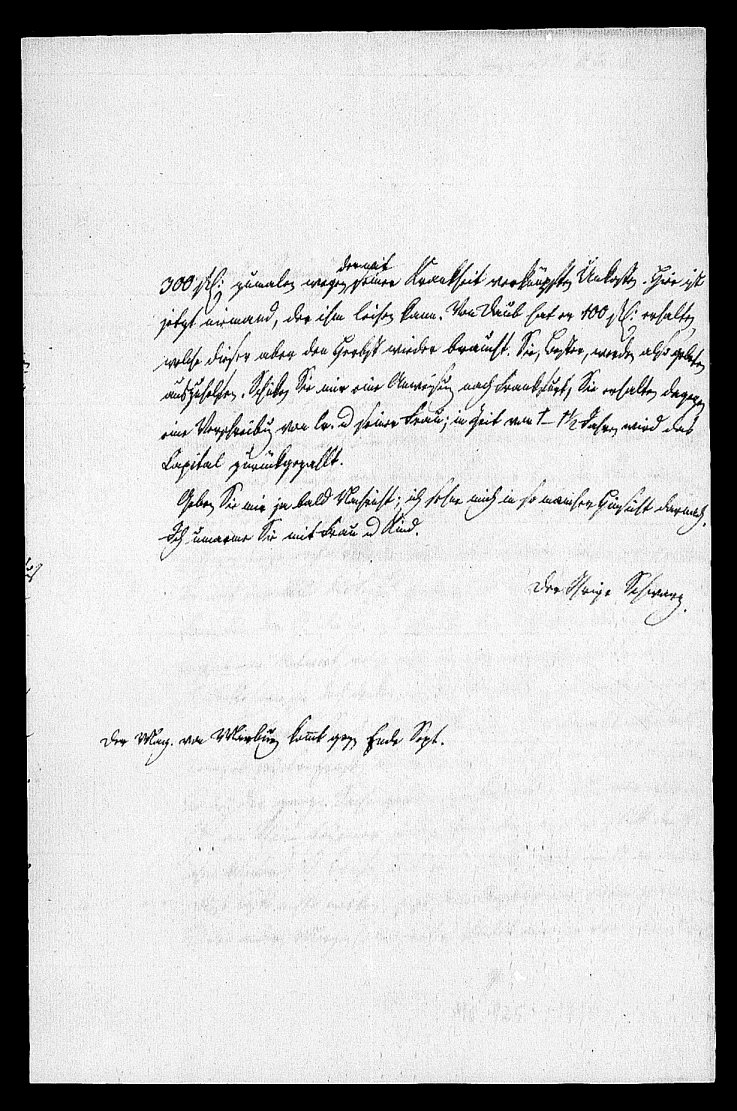 300 fl: zumalen wegen seiner dermit Krankheit verknüpften Unkosten. Hier ist
jetzt niemand, der ihm leihen kann. Von Daub hat er 100 fl: erhalten,
welche dieser aber den Herbst wieder braucht. Sie, Bester, werden also gebeten
auszuhelfen. Schicken Sie mir eine Anweisung nach Frankfurt, Sie erhalten dagegen
eine Verschreibung von Cr. u seiner Frau; in Zeit von 1 – 1½ Jahren wird das
Capital zurückgezahlt.
Geben Sie mir ja bald Nachricht; ich sehne mich in so mancher Hinsicht darnach.
Ich umarme Sie mit Frau u Kind.
Der Ihrige Schwarz.
Der Mag. von Marburg kommt gegen Ende Sept.